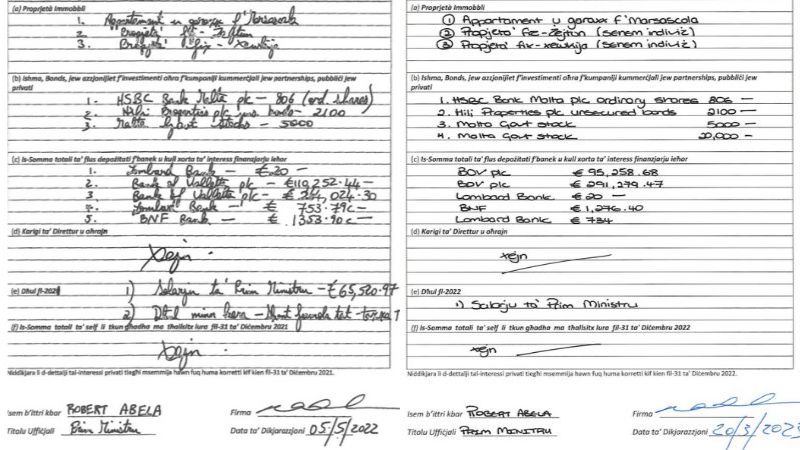 (a) Proprjetà Immobbli
1. Appartament u garaxx f'Marsascala
2. "Proprjetà" fiż-Żejtun
3. Proprjetà fix-Xewkija
(b) Ishma, Bonds, jew azzjonijiet f'investimenti oħra f'kumpaniji kummerċjali jew partnerships, pubbliċi jew privati
1. HSBC Bank Malta plc - 806 (ord. shares)
2. Hili Properties plc uns. bonds - 2100
3. Malta Govt Stocks - 5000
(ċ) Is-Somma totali ta' flus depożitati f'banek u kull xorta ta' interess finanzjarju ieħor
1. Lombard Bank - €20 -
2. Bank of Valletta plc - €119,252.44 -
3. Bank of Valletta plc - €
4. Lombard Bank - € 753.79c -
5. BNF Bank - € 1353.90c -
(d) Karigi ta' Direttur u oħrajn
Xejn
(e) Dħul fl-2021
1) Salarju ta' Prim Ministru - €65,520.97
2) Dħul minn
(f) Is-Somma totali ta' self li tkun għadha ma tħallsitx lura fil-31 ta' Diċembru 2021
Xejn
Niddikjara li d-dettalji tal-interessi privati tiegħi msemmija hawn fuq huma korretti kif kien fil-31 ta' Diċembru 2021.
Isem b'ittri kbar ROBERT ABELA Firma
Titolu Uffiċjali Prim Ministru Data ta' Dikjarazzjoni 05/5/2022
(a) Proprjetà Immobbli
1 Appartament u garaxx f'Marsascola
2 Propjetà fiż-Żejtun (senem indiviż)
3 Propjetà fix-xewkija (senem indiviż)
(b) Ishma, Bonds, jew azzjonijiet f'investimenti oħra f'kumpaniji kummerċjali jew partnerships, pubbliċi jew privati
1. HSBC Bank Malta plc ordinary shares 806 -
2. Hili Properties plc unsecured bonds 2100 -
3. Malta Govt stock 5000 -
4. Malta Govt stock 20,000 -
(ċ) Is-Somma totali ta' flus depożitati f'banek u kull xorta ta' interess finanzjarju ieħor
BOV plc € 95,258.68
BOV plc € 291,279.47
Lombard Bank € 20 -
BNF € 1,276.40
Lombard Bank € 734
(d) Karigi ta' Direttur u oħrajn
xejn
(e) Dħul fl-2022
1) Salarju ta' Prim Ministru
(f) Is-Somma totali ta' self li tkun għadha ma tħallsitx lura fil-31 ta' Diċembru 2022
xejn
Niddikjara li d-dettalji tal-interessi privati tiegħi msemmija hawn fuq huma korretti kif kien fil-31 ta' Diċembru 2022.
Isem b'ittri kbar ROBERT ABELA Firma
Titolu Uffiċjali PRIM MINISTRU Data ta' Dikjarazzjoni 20/3/2023